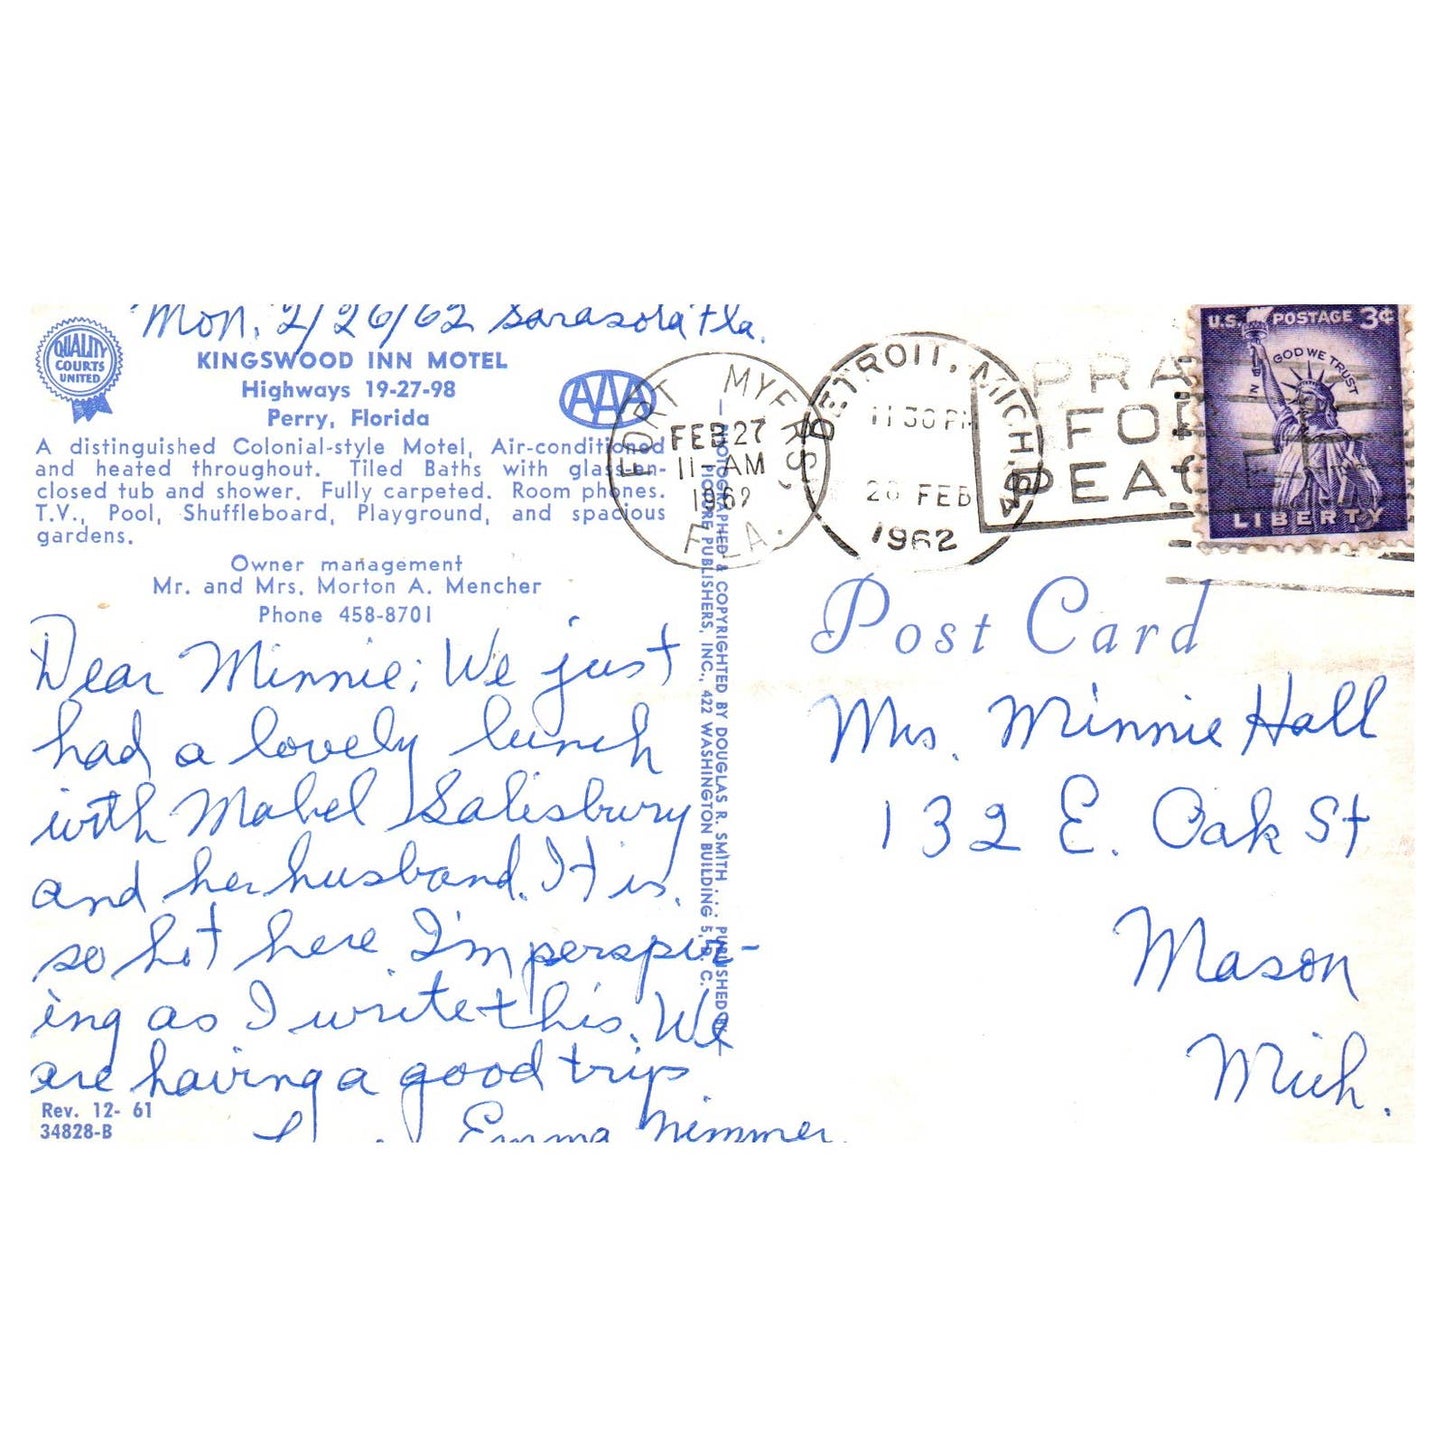 Mon. 2/26/62 Sarasota Fla.
QUALITY
COURTS
UNITED
KINGSWOOD INN MOTEL
Highways 19-27-98
Perry, Florida
AAA
A distinguished Colonial-style Motel, Air-conditioned
and heated throughout. Tiled Baths with glass en-
closed tub and shower. Fully carpeted. Room phones.
T.V., Pool, Shuffleboard, Playground, and spacious
gardens.
Owner management
Mr. and Mrs. Morton A. Mencher
Phone 458-8701
Dear Minnie; We just
had a lovely lunch
with Mabel Salisbury
and her husband. It is
so hot here I'm perspir-
ing as I write this. We
are having a good trip
Emma Nimmer
Rev. 12- 61
34828-B
PHOTOGRAPHED & COPYRIGHTED BY DOUGLAS R. SMITH... PUBLISHED
PUBLISHERS, INC., 422 WASHINGTON BUILDING 5, D. C.
FORT MYERS,
FEB 27
11-AM
1962
FLA.
DETROIT, MICH.
11 30 PM
28 FEB
1962
PRA
FOR
PEAC
U.S. POSTAGE 3¢
IN GOD WE TRUST
LIBERTY
Post Card
Mrs. Minnie Hall
132 E. Oak St
Mason
Mich.